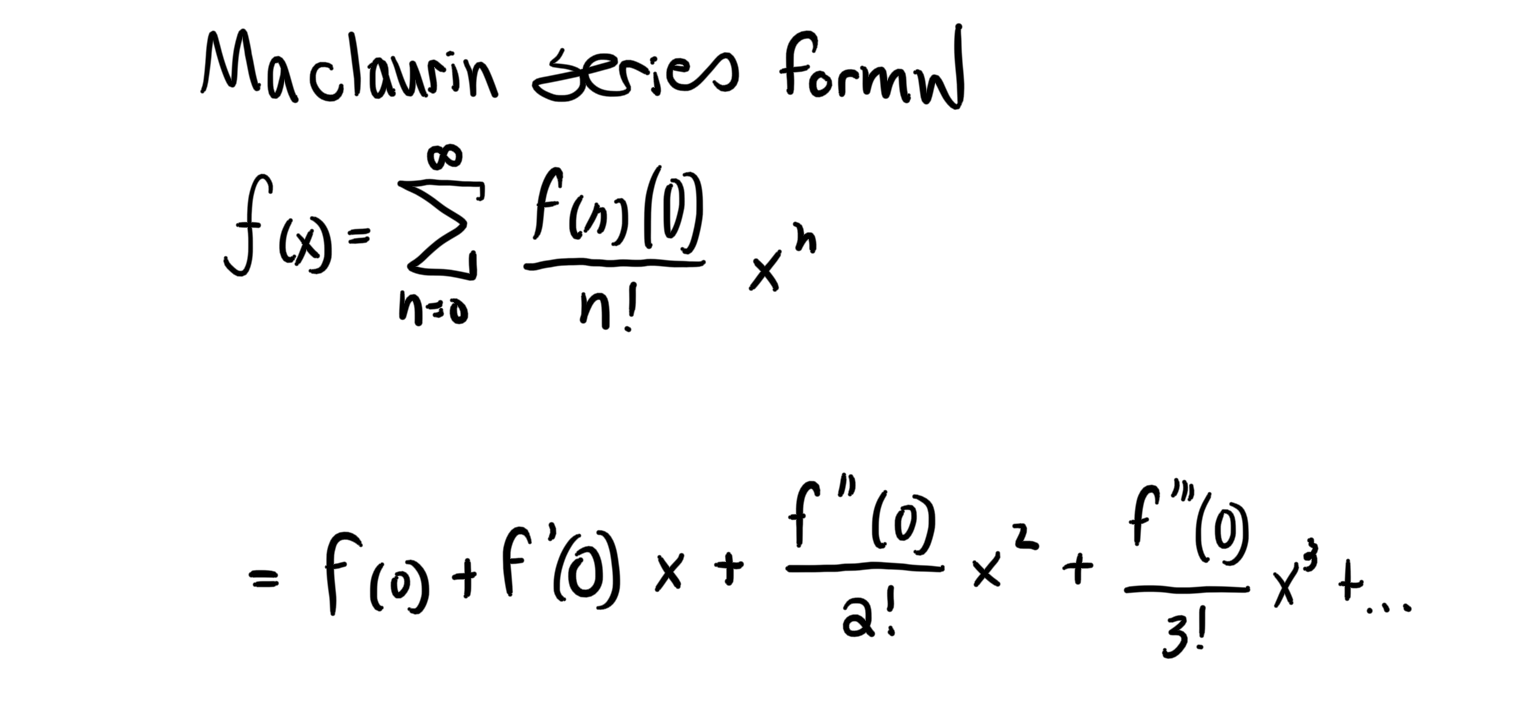 Maclaurin series formul
f(x) = ∞ ∑ n=0 f(n)(0) / n! x^n
= f(0) + f'(0) x + f''(0) / 2! x^2 + f'''(0) / 3! x^3 + ...